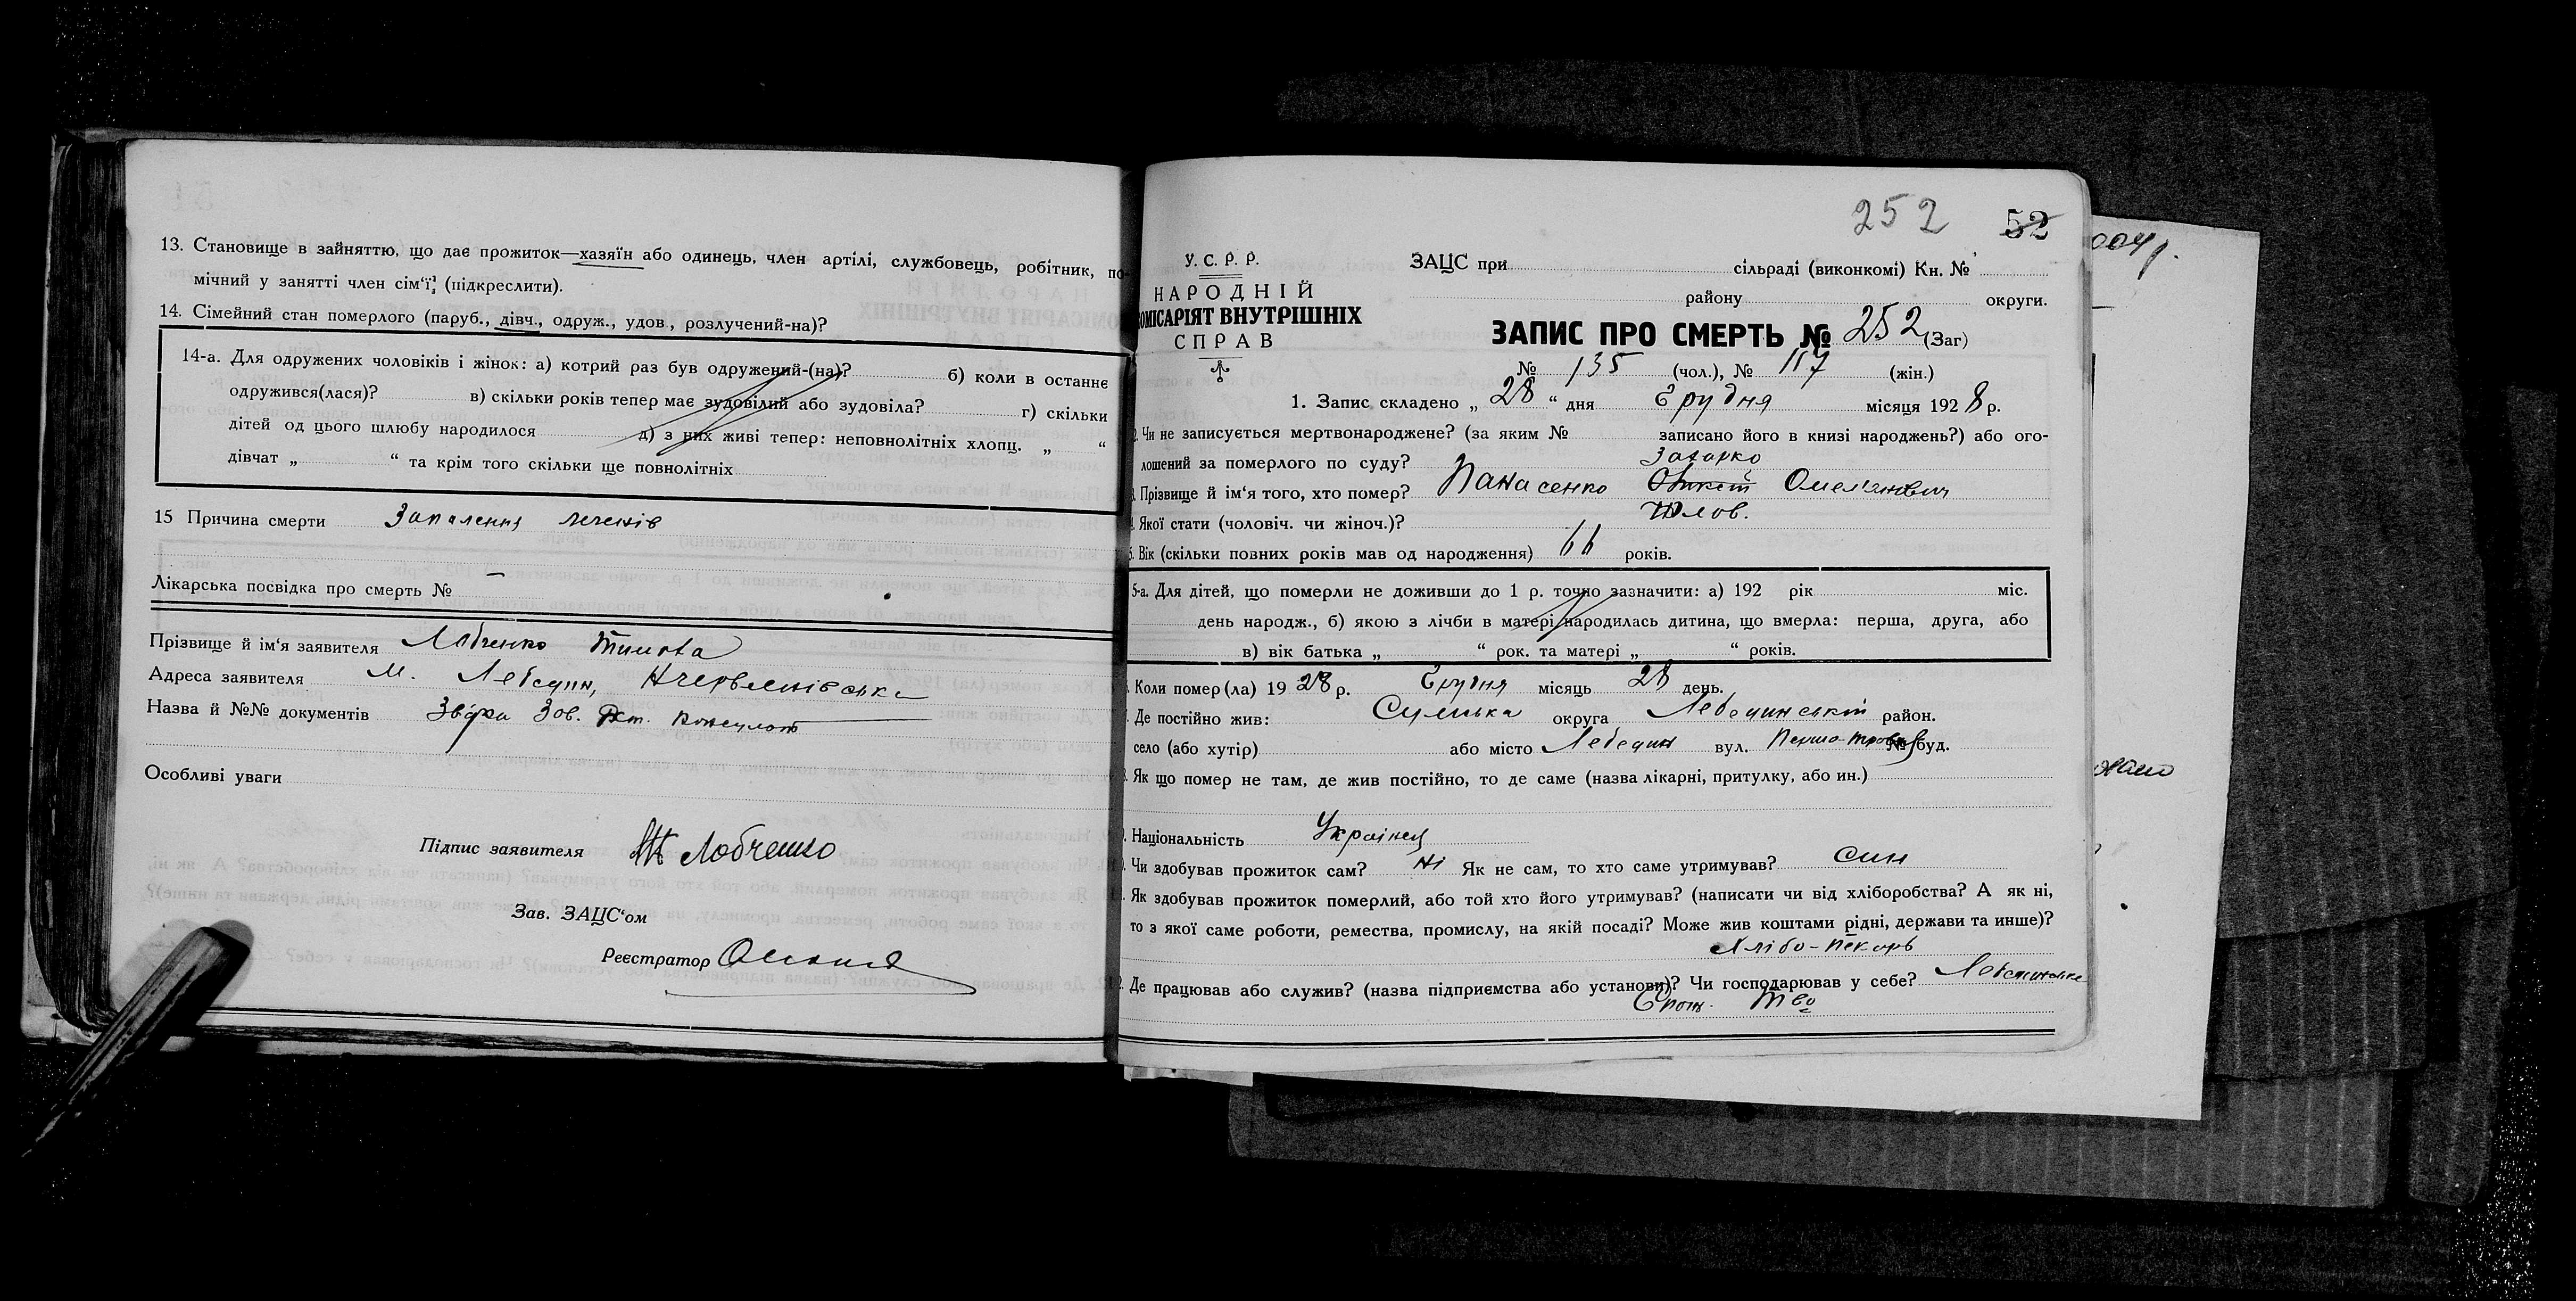 13. Становище в зайняттю, що дає прожиток—хазяїн або одинець, член артілі, службовець, робітник, по-
мічний у занятті член сім'ї, (підкреслити).
14. Сімейний стан померлого (паруб., дівч., одруж., удов, розлучений-на)?
14-а. Для одружених чоловіків і жінок: а) котрий раз був одружений-(на)? б) коли в останнє
одружився(лася)? в) скільки років тепер має зудовілий або зудовіла? г) скільки
дітей од цього шлюбу народилося д) з них живі тепер: неповнолітніх хлопц. „ “
дівчат „ “ та крім того скільки ще повнолітніх
15 Причина смерти Запалення легенів
Лікарська посвідка про смерть № —
Прізвище й ім'я заявителя Лобченко
Адреса заявителя м. Лебедин,
Назва й №№ документів
Особливі уваги
Підпис заявителя Лобченко
Зав. ЗАЦС'ом
Реєстратор
252 52
У. С. Р. Р.
НАРОДНІЙ
КОМІСАРІЯТ ВНУТРІШНІХ
СПРАВ
ЗАЦС при сільраді (виконкомі) Кн. №
району округи.
ЗАПИС ПРО СМЕРТЬ № 252 (Заг)
№ 135 (чол.), № 117 (жін.)
1. Запис складено „ 28 “ дня Грудня місяця 1928 р.
2. Чи не записується мертвонароджене? (за яким № записано його в книзі народжень?) або ого-
лошений за померлого по суду?
Захарко
3. Прізвище й ім'я того, хто помер? Панасенко Омелянович
4. Якої стати (чоловіч. чи жіноч.)? Чолов.
5. Вік (скільки повних років мав од народження) 66 років.
5-а. Для дітей, що померли не доживши до 1 р. точно зазначити: а) 192 рік міс.
день народж., б) якою з лічби в матері народилась дитина, що вмерла: перша, друга, або
в) вік батька „ “ рок. та матері „ “ років.
Коли помер(ла) 1928 р. Грудня місяць 28 день.
Де постійно жив: Сумська округа Лебединський район.
село (або хутір) або місто Лебедин вул. Першо-травн № буд.
Як що помер не там, де жив постійно, то де саме (назва лікарні, притулку, або ин.)
Національність Українец
Чи здобував прожиток сам? Ні Як не сам, то хто саме утримував? син
Як здобував прожиток померлий, або той хто його утримував? (написати чи від хліборобства? А як ні,
то з якої саме роботи, ремества, промислу, на якій посаді? Може жив коштами рідні, держави та инше)?
Хлібо-пекарь
Де працював або служив? (назва підприємства або установи)? Чи господарював у себе? Лебединське
Спож. Т-во